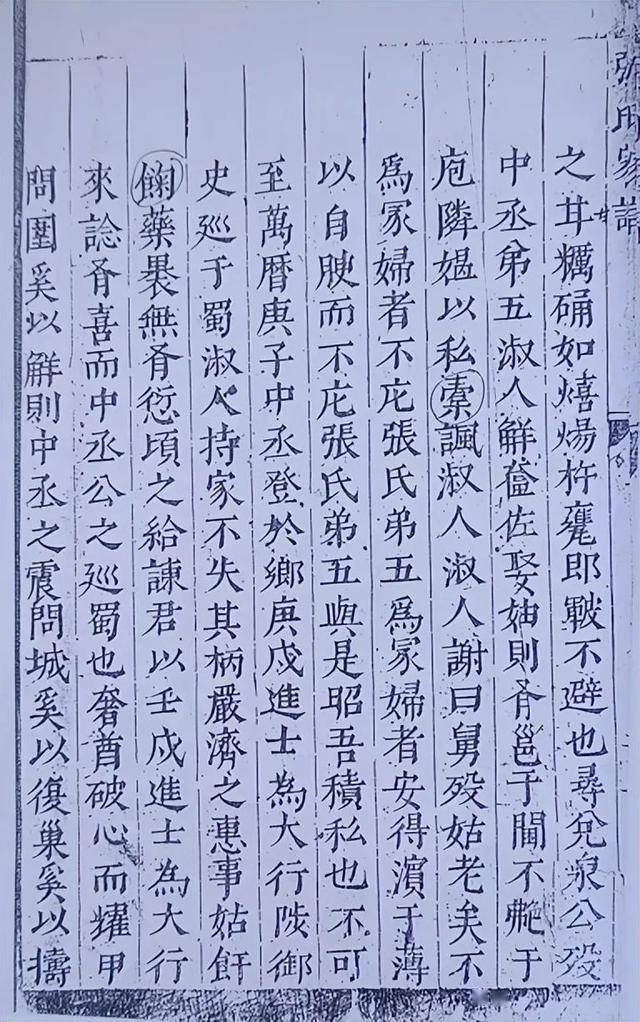 張氏家譜
之甘糲硧如熺煬杵甕即皸不避也尋兌泉公歿
中丞弟五淑人觧奩佐娶妯則有邕于閫不艴于
庖隣媪以私橐諷淑人淑人謝曰舅歿姑老矣不
爲冢婦者不庀張氏弟五爲冢婦者安得濵于薄
以自腴而不庀張氏弟五與是昭吾積私也不可
至萬曆庚子中丞登於鄉庚戌進士為大行陟御
史廵于蜀淑人持家不失其柄嚴濟之惠事姑飦
藥褁無有愆頃之給諫君以壬戌進士為大行
來諗有喜而中丞公之廵蜀也奢酋破心而耀甲
問圉奚以觧則中丞之震問城奚以復巢奚以擣